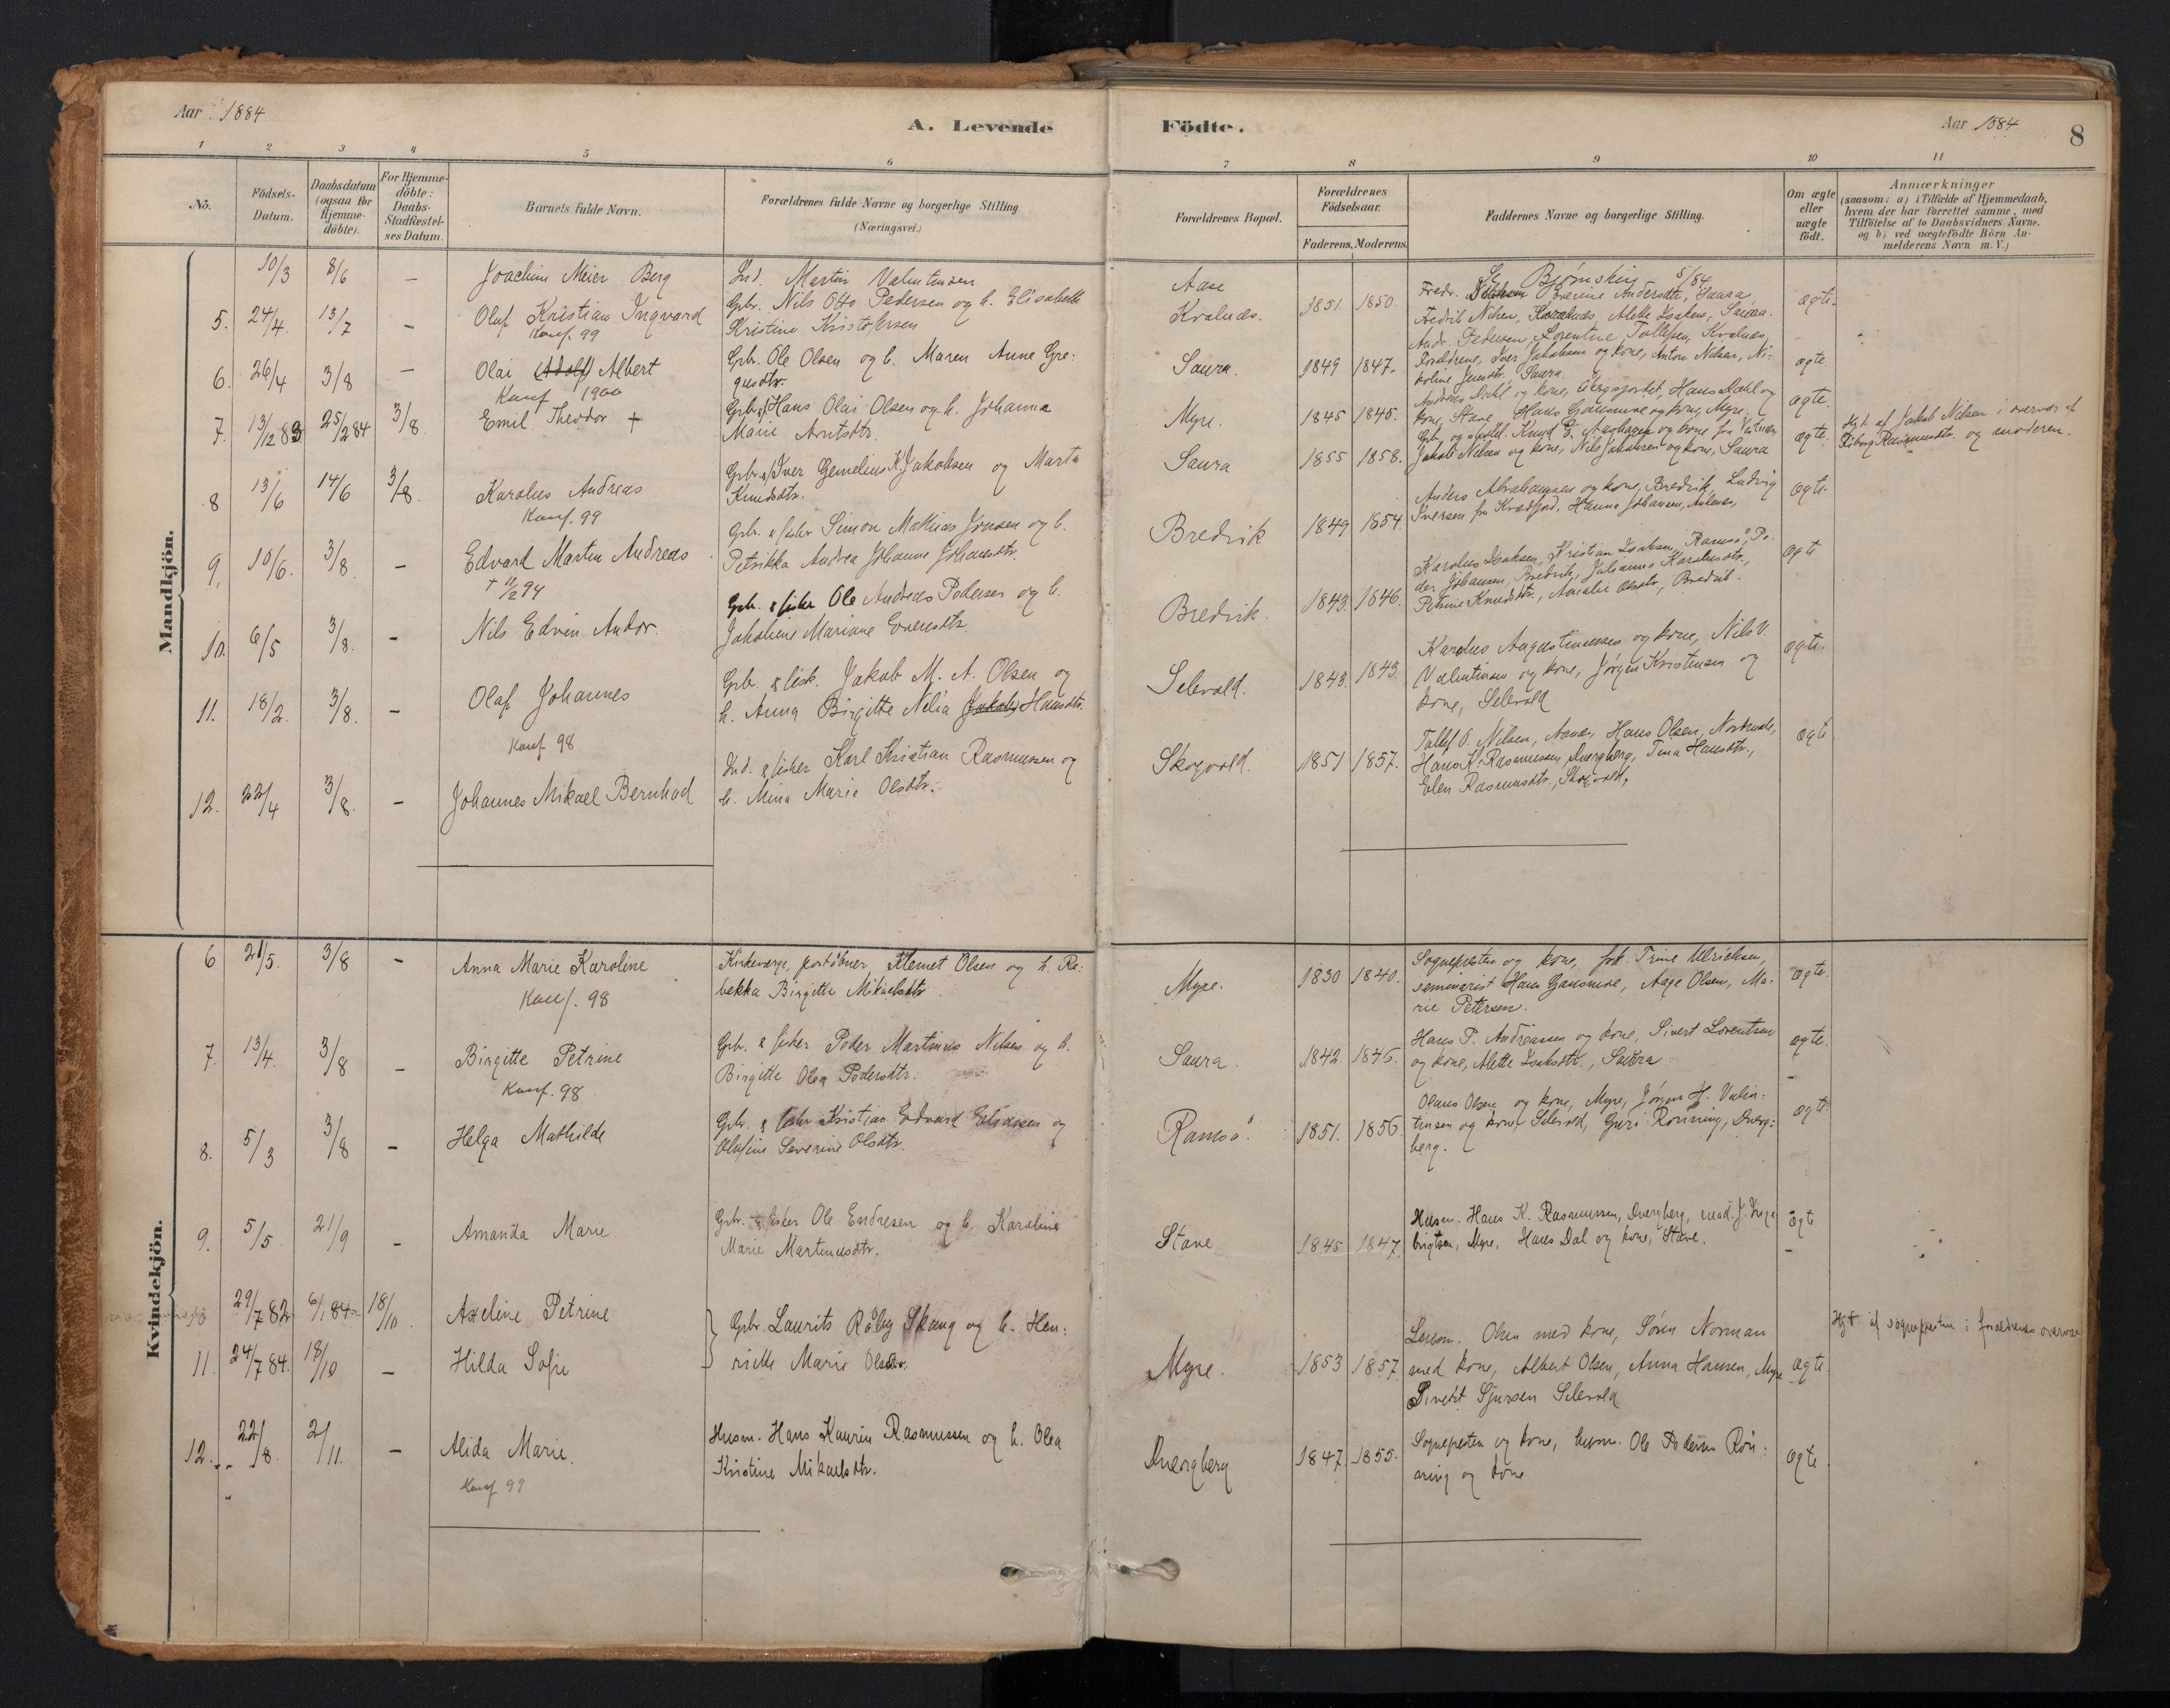 Aar 1884
A. Levende
Födte.
Aar 1884
8
1 2 3 4 5 6 7 8 9 10 11
No.
Födsels-
Datum.
Daabsdatum
(ogsaa for
Hjemme-
döbte).
For Hjemme-
döbte:
Daabs-
Stadfæstel-
ses Datum.
Barnets fulde Navn.
Forældrenes fulde Navne og borgerlige Stilling
(Næringsvei.)
Forældrenes Bopæl.
Forældrenes
Födselsaar.
Faderens. Moderens.
Faddernes Navne og borgerlige Stilling.
Om ægte
eller
uægte
födt.
Anmærkninger
(saasom: a) i Tilfælde af Hjemmedaab,
hvem der har forrettet samme, med
Tilföielse af to Daabsvidners Navne.
og b) ved uægtefödte Börn An-
melderens Navn m. V.)
Mandkjön.
10/3 8/6 – Joachim Meier Berg
Ind. Martin Valentinsen
Aase
Se Bjørnskin 5/84
5. 24/4. 13/7 – Olaf Kristian Ingvard
Konf. 99
Gbr. Nils Otto Pedersen og h. Elisabeth
Kristine Kristofersen
Kvalnæs. 1851. 1850.
Fredr. Severine Andersdtr, Saura,
Fredrik Nilsen, Kvalnæs, Alette Isaksen, Saura.
Andr. Pedersen, Lorentine Tollefsen, Kvalnæs,
ægte.
6. 26/4 3/8 – Olai (Adolf) Albert
Konf 1900
Gbr. Ole Olsen og h. Maren Anne Gre:
gusdtr.
Saura. 1849 1847.
Forældrene, Iver Jakobsen og kone, Anton Nilsen, Ni-
koline Jensdtr, Saura.
ægte.
7. 13/12 83 25/2 84 3/8 Emil Theodor +
Gbr. & f. Hans Olai Olsen og h. Johanna
Marie Arntsdtr.
Myre. 1845 1845.
Andreas Dahl og kone, Hans Dahl og
kone, Stave, Hans Gausmoe og kone, Myre.
ægte.
8 13/6 14/6 3/8. Karolus Andreas
Konf. 99
Gbr. & f. Iver Gemelius K. Jakobsen og Marta
Knudsdtr.
Saura 1855 1858.
Jakob Nilsen og kone, Nils Jakobsen og kone, Saura
ægte.
Hjd. af Jakob Nilsen i overvær af
Rasmusdtr. og moderen.
9. 10/6. 3/8. – Edvard Martin Andreas
+ 11/2 94
Gbr. & fisker Simon Mathias Jonsen og h.
Petrikka Andrea Johanna Johansdtr.
Bredvik 1849 1854
Anders Abrahamsen og kone, Bredvik, Ludvig
Iversen fra Kvædfjord, Hanna Johansen,
ægte.
10. 6/5 3/8. – Nils Edvin Andor.
Gbr. & fisker Ole Andreas Pedersen og h.
Jakobine Mariane Evensdtr.
Bredvik. 1843. 1846.
Karolus Isaksen, Kristian Isaksen, Ramsö, Pe-
der Johansen, Bredvik, Julianna Karolusdtr.,
Petrine Knudsdtr., Amalie Olsdtr., Bredvik.
ægte
11. 18/2. 3/8. – Olaf Johannes
Konf 98
Gbr. & fisk. Jakob M. A. Olsen og
h. Anna Birgitte Nilia (Jakobs) Hansdtr.
Selevold. 1843. 1843.
Karolus Augustinussen og kone, Nils V.
Valentinsen og kone, Jørgen Kristensen og
kone, Selevold
ægte.
12. 22/4 3/8. – Johannes Mikael Bernhad
Ind. & fisker Karl Kristian Rasmussen og
h. Mina Marie Olsdtr.
Skogvold. 1851 1857.
Tollef O. Nilsen, Aanæs, Hans Olsen,
Hans K. Rasmussen, Dvergberg, Tina Hansdtr.,
Elen Rasmusdtr., Skogvold,
ægte
Kvindekjön.
6 21/5. 3/8 – Anna Marie Karoline
Konf. 98
Kirkeværge, poståbner Klemet Olsen og h. Ra:
bekka Birgitte Mikaelsdtr
Myre. 1830 1840.
Sognepresten og kone, frk. Trine Ulriksen,
seminarist Hans Gausmoe, Aage Olsen, Ma-
rie Petersen.
ægte.
7. 13/4. 3/8 – Birgitte Petrine
Konf. 98
Gbr. & fisker Peder Martinus Nilsen og h.
Birgitte Olea Pedersdtr.
Saura. 1842. 1846.
Hans P. Andreassen og kone, Sivert Lorentsen
og kone, Alette Isaksdtr., Saura
ægte.
8. 5/3 3/8 – Helga Mathilde
Gbr. & fisker Kristian Edvard Eliassen og
Olafine Severine Olsdtr.
Ramsö. 1851. 1856
Olaus Olsen og kone, Myre, Jörgen H. Valin-
tinsen og kone, Selevold, Guri Rönning, Dverg:
berg.
ægte.
9. 5/5 21/9 – Amanda Marie
Gbr. & fisker Ole Endresen og h. Karoline
Marie Martinusdtr.
Stave 1845 1847.
Husm. Hans K. Rasmussen, Dvergberg, mad. J. Inge-
brigtsen, Myre, Hans Dal og kone, Stave.
ægte
29/7 82 6/1 84 18/10. Axeline Petrine
11. 24/7 84. 18/10 – Hilda Sofie
Gbr. Laurits Röby Skaug og h. Hen:
rikke Marie Olsdtr.
Myre. 1853 1857.
Lensm. Olsen med kone, Sören Norman
med kone, Albert Olsen, Anna Hansen, Myre
Sivert Sjursen Selevold
ægte
Hjd. af sognepresten i forældrenes overvær
12. 22/8. 2/11. – Alida Marie.
Konf 99
Husm. Hans Kaurin Rasmussen og h. Olea
Kristine Mikaelsdtr.
Dvergberg 1847. 1855.
Sognepresten og kone, husm. Ole Pedersen Rön:
ning og kone
ægte